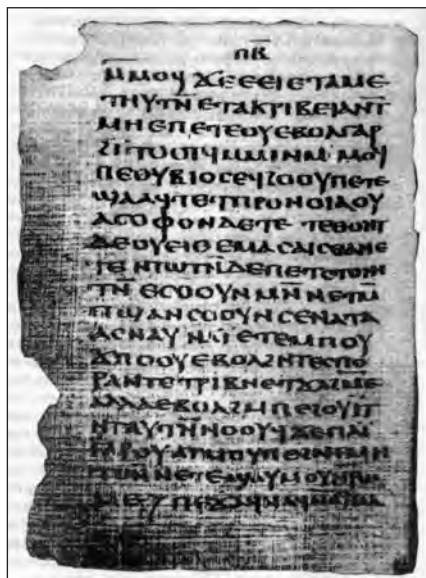 ⲡ̅ⲃ̅
ⲙ̅ⲙⲟⲩ ϫⲉ ⲉⲉⲓⲉⲧⲁⲙⲉ
ⲧⲏⲩⲧⲛ̅ ⲉⲧⲁⲕⲣⲓⲃⲉⲓⲁ ⲛⲧ
ⲙⲏⲉ ⲡⲉⲧⲉⲟⲩⲉⲃⲟⲗ ⲅⲁⲣ
ϩⲓⲧⲟⲟⲧϥ ⲙⲙⲓⲛ ⲙ̅ⲙⲟϥ
ⲡⲉ ⲟⲩⲃⲓⲟⲥ ⲉϥϩⲟⲟⲩ ⲡⲉⲧⲉ
ϣⲁϥⲁⲁϥ ⲧⲉⲡⲣⲟⲛⲟⲓⲁ ⲟⲩ
ⲁⲥⲟⲫⲟⲛ ⲇⲉ ⲧⲉ ⲧⲉⲑⲟⲛⲧ
ⲇⲉ ⲟⲩⲉⲓ ⲉⲥⲉⲙⲁⲥⲁⲓⲥⲑⲁⲛⲉ
ⲧⲉ ⲛⲧⲱⲧⲛ̅ ⲇⲉ ⲡⲉⲧⲉⲧⲟ ⲛⲏ
ⲧⲛ̅ ⲉⲥⲟⲟⲩⲛ ⲙⲛ̅ ⲛⲉⲧⲙ̅
ⲡϣⲁ ⲛⲥⲟⲟⲩⲛ ⲥⲉⲛⲁⲧⲁ
ⲁⲥ ⲛⲁⲩ ⲛϭⲓ ⲉⲧⲉⲙⲡⲟⲩ
ϫⲡⲟⲟⲩ ⲉⲃⲟⲗ ϩⲛ ⲧⲉⲥⲡⲟ
ⲣⲁ ⲛⲧⲉⲧⲣⲓⲃⲏ ⲉⲧϫⲁϩⲙⲉ
ⲁⲗⲗⲁ ⲉⲃⲟⲗ ϩⲙ ⲡⲉϩⲟⲩⲓⲧ
ⲛⲧⲁⲩⲧⲛⲛⲟⲟⲩϥ ϫⲉ ⲡⲁⲓ
ⲅⲁⲣ ⲟⲩⲁⲧⲙⲟⲩ ⲡⲉ